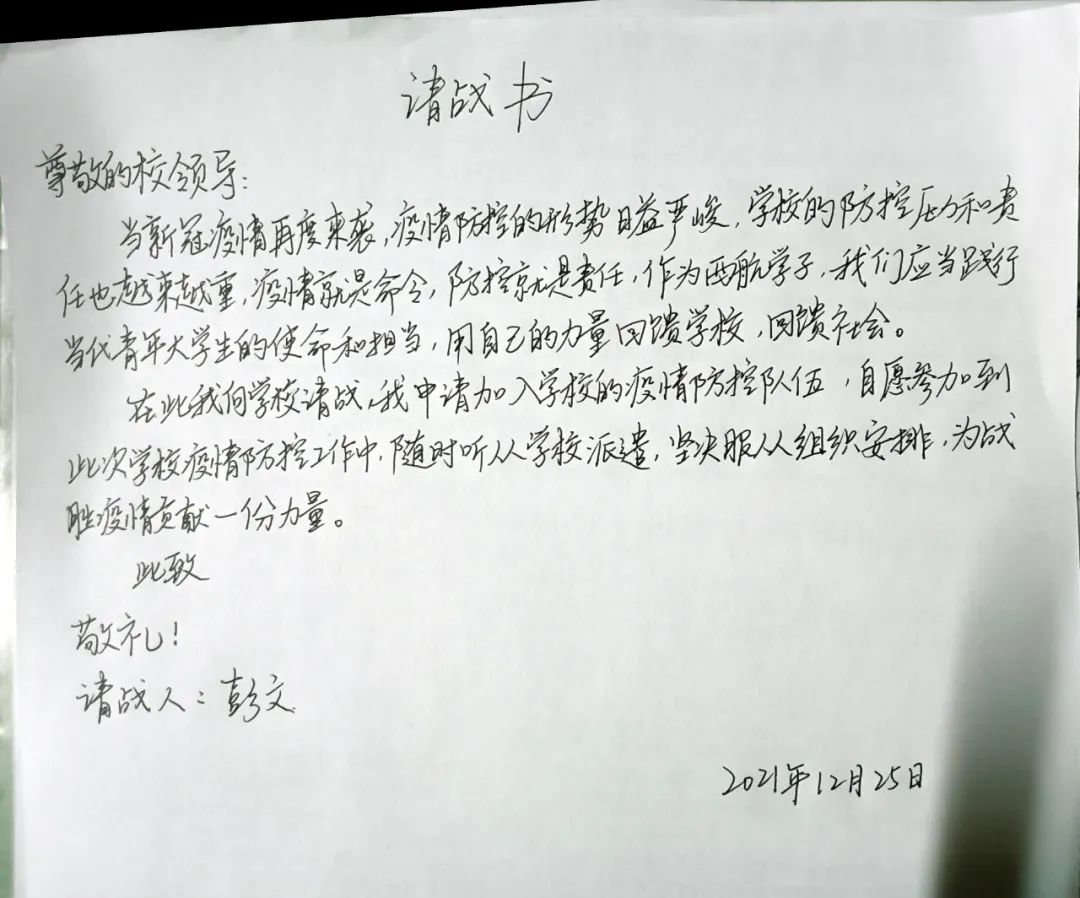 请战书
尊敬的校领导:
当新冠疫情再度来袭,疫情防控的形势日益严峻,学校的防控压力和责
任也越来越重,疫情就是命令,防控就是责任,作为西航学子,我们应当践行
当代青年大学生的使命和担当,用自己的力量回馈学校,回馈社会。
在此我向学校请战,我申请加入学校的疫情防控队伍,自愿参加到
此次学校疫情防控工作中,随时听从学校派遣,坚决服从组织安排,为战
胜疫情贡献一份力量。
此致
敬礼!
请战人:彭文
2021年12月25日